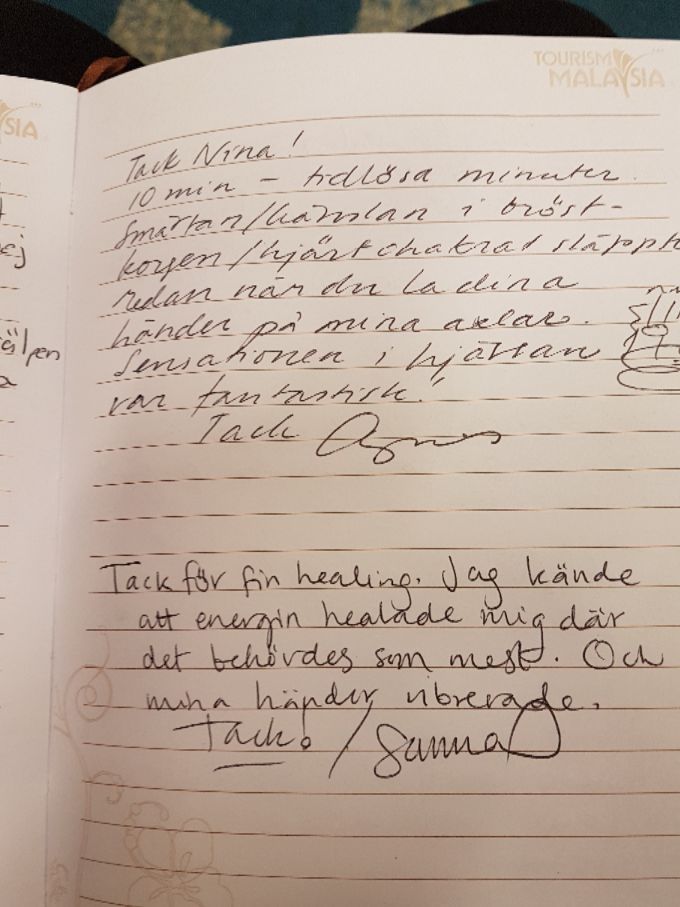 TOURISM
MALAYSIA
SIA
Tack Nina!
10 min - tidlösa minuter.
Smärtan/känslan i bröst-
korgen/hjärtchakrat släppt
redan när du la dina
händer på mina axlar.
Sensationen i hjärtan
var fantastisk!
Tack Agnes
älpen
Tack för fin healing. Jag kände
att energin healade mig där
det behövdes som mest. Och
mina händer vibrerade.
Tack! / Sanna